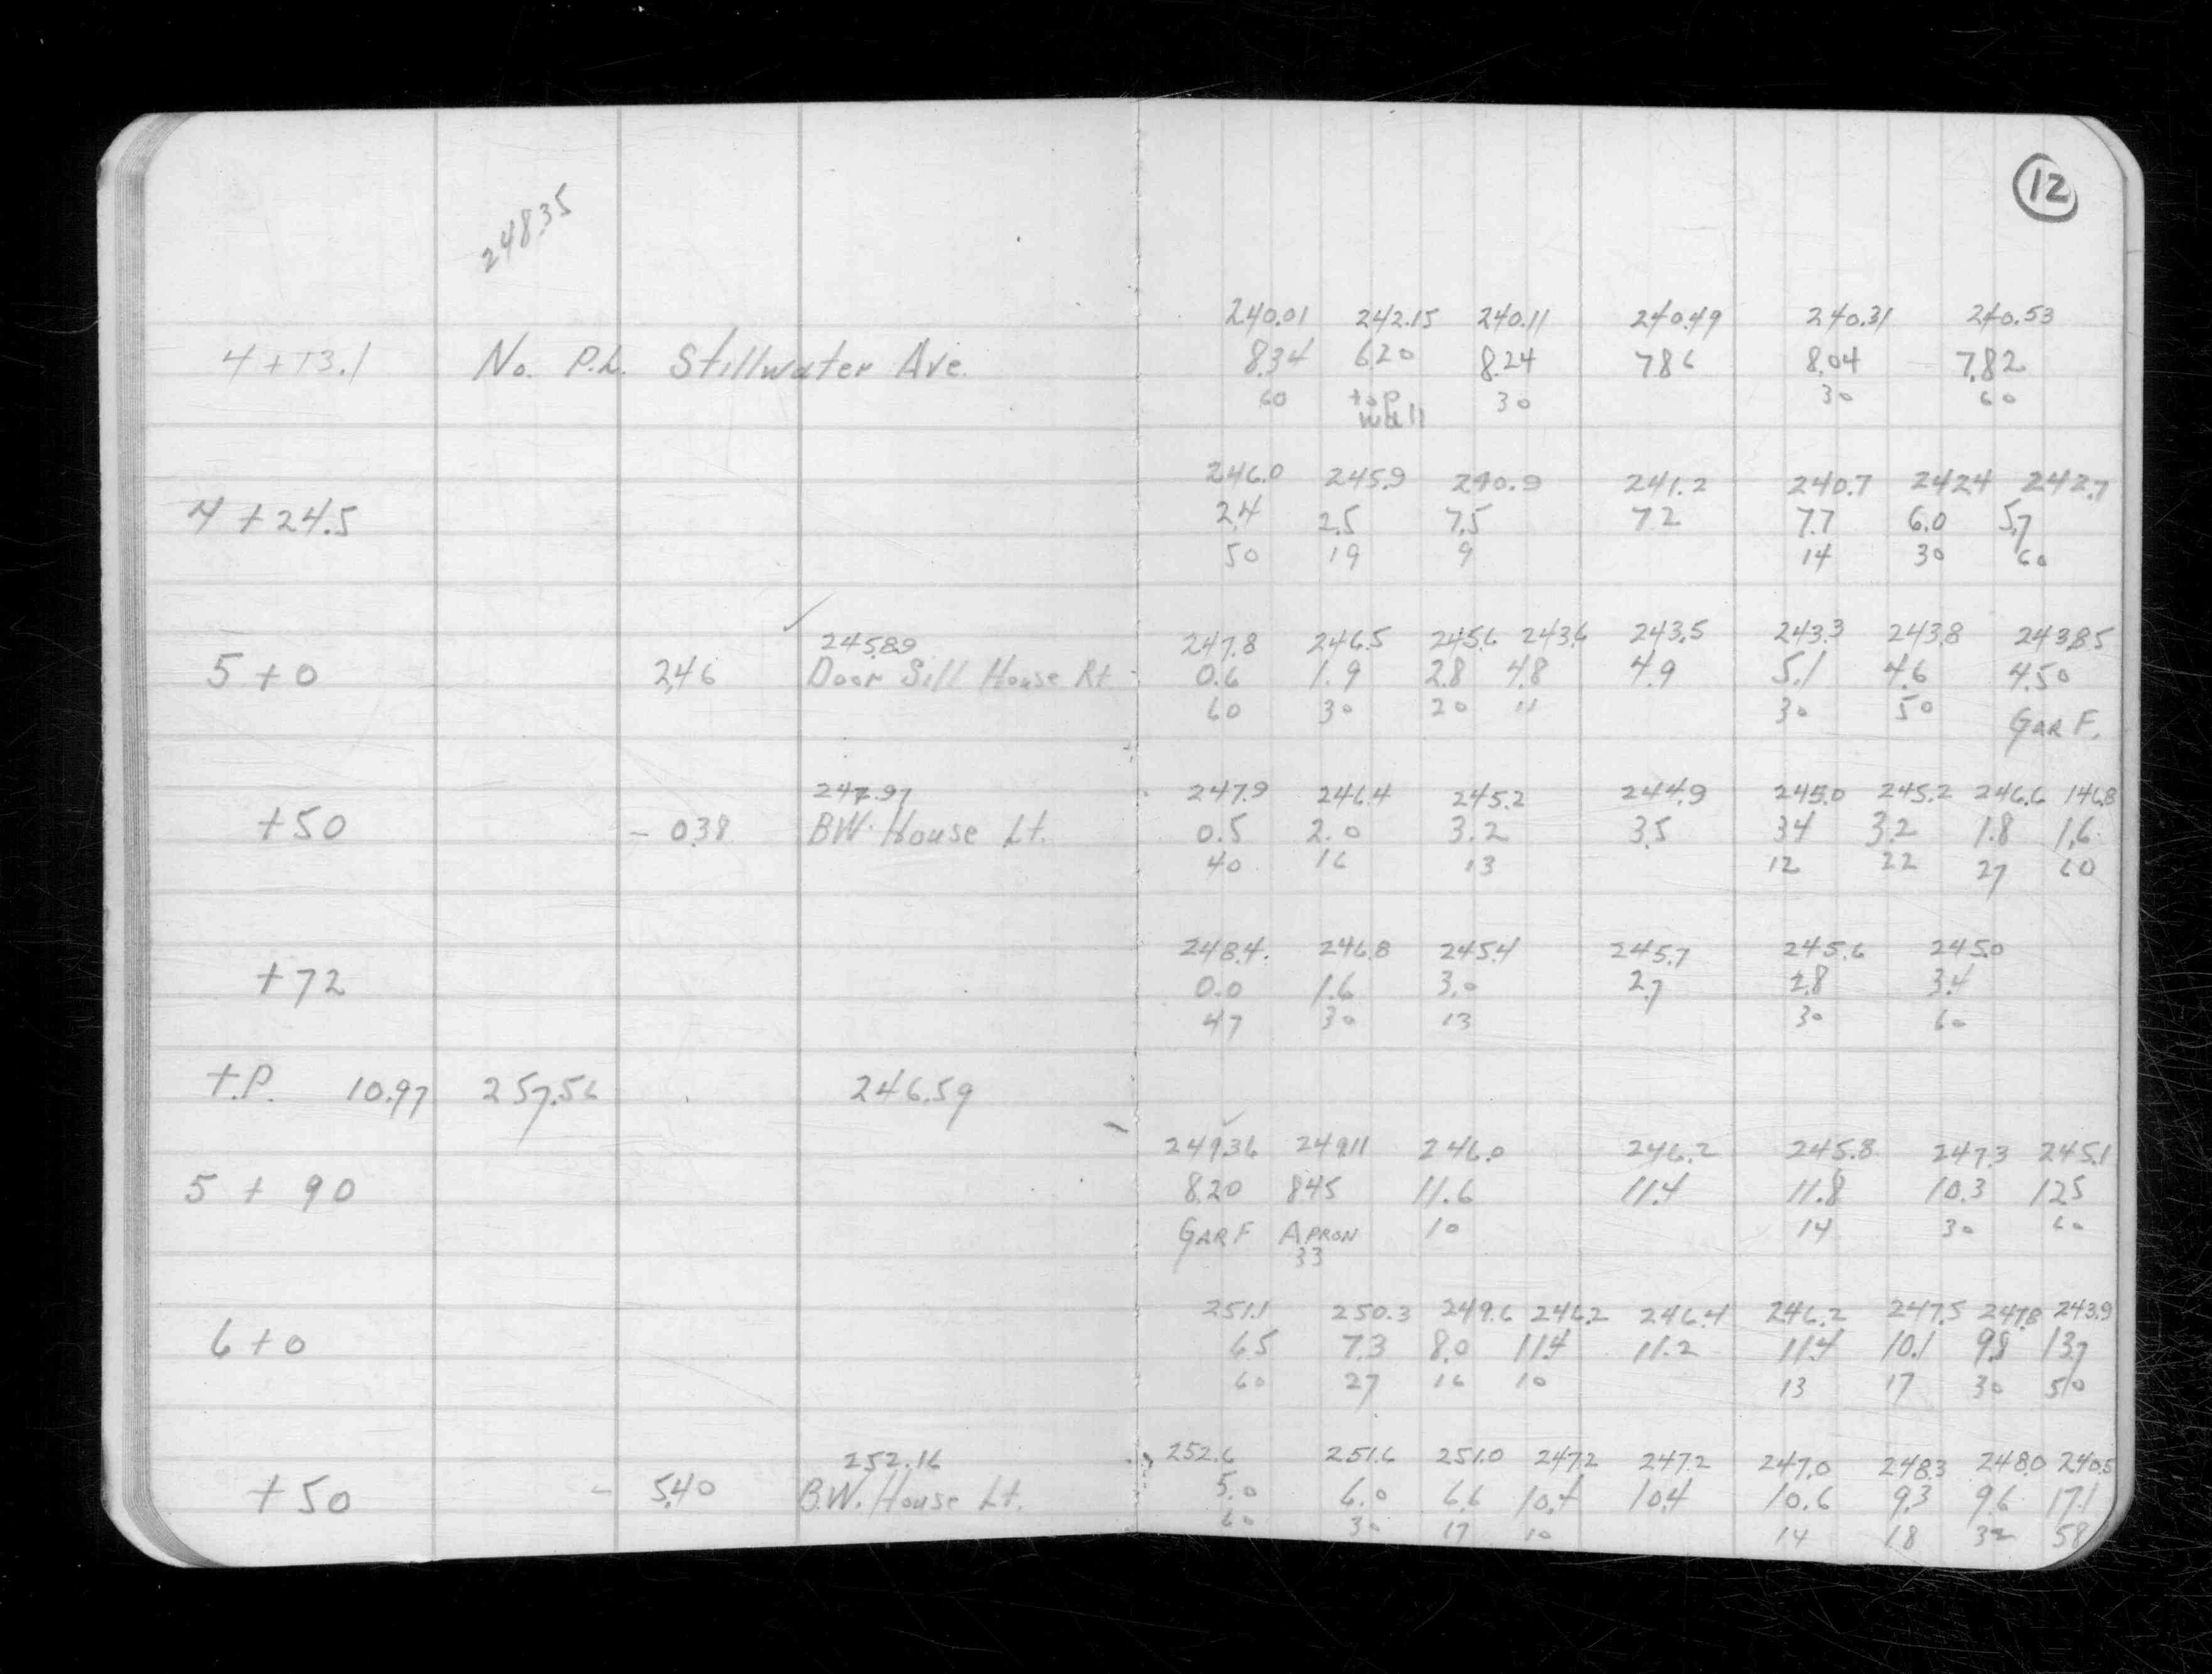 12
248.35
240.01 242.15 240.11 240.49 240.31 240.53
4+13.1 No. P.L. Stillwater Ave. 8.34 6.20 8.24 7.86 8.04 7.82
60 top wall 30 30 60
246.0 245.9 240.9 241.2 240.7 242.4 242.7
4+24.5 2.4 2.5 7.5 7.2 7.7 6.0 5.7
50 19 9 14 30 60
245.89 247.8 246.5 245.6 243.6 243.5 243.3 243.8 243.85
5+0 2.46 Door Sill House Rt. 0.6 1.9 2.8 4.8 4.9 5.1 4.6 4.50
60 30 20 11 30 50 GAR F.
247.97 247.9 246.4 245.2 244.9 245.0 245.2 246.6 146.8
+50 - 0.38 B.W. House Lt. 0.5 2.0 3.2 3.5 3.4 3.2 1.8 1.6
40 16 13 12 22 27 60
248.4 246.8 245.4 245.7 245.6 245.0
+72 0.0 1.6 3.0 2.7 2.8 3.4
47 30 13 30 60
T.P. 10.97 257.56 246.59
249.36 249.11 246.0 246.2 245.8 247.3 245.1
5+90 8.20 8.45 11.6 11.4 11.8 10.3 12.5
GAR F APRON 10 14 30 60
33
251.1 250.3 249.6 246.2 246.4 246.2 247.5 247.8 243.9
6+0 6.5 7.3 8.0 11.4 11.2 11.4 10.1 9.8 13.7
60 27 16 10 13 17 30 50
252.16 252.6 251.6 251.0 247.2 247.2 247.0 248.3 248.0 240.5
+50 - 5.40 B.W. House Lt. 5.0 6.0 6.6 10.4 10.4 10.6 9.3 9.6 17.1
60 30 17 10 14 18 32 58